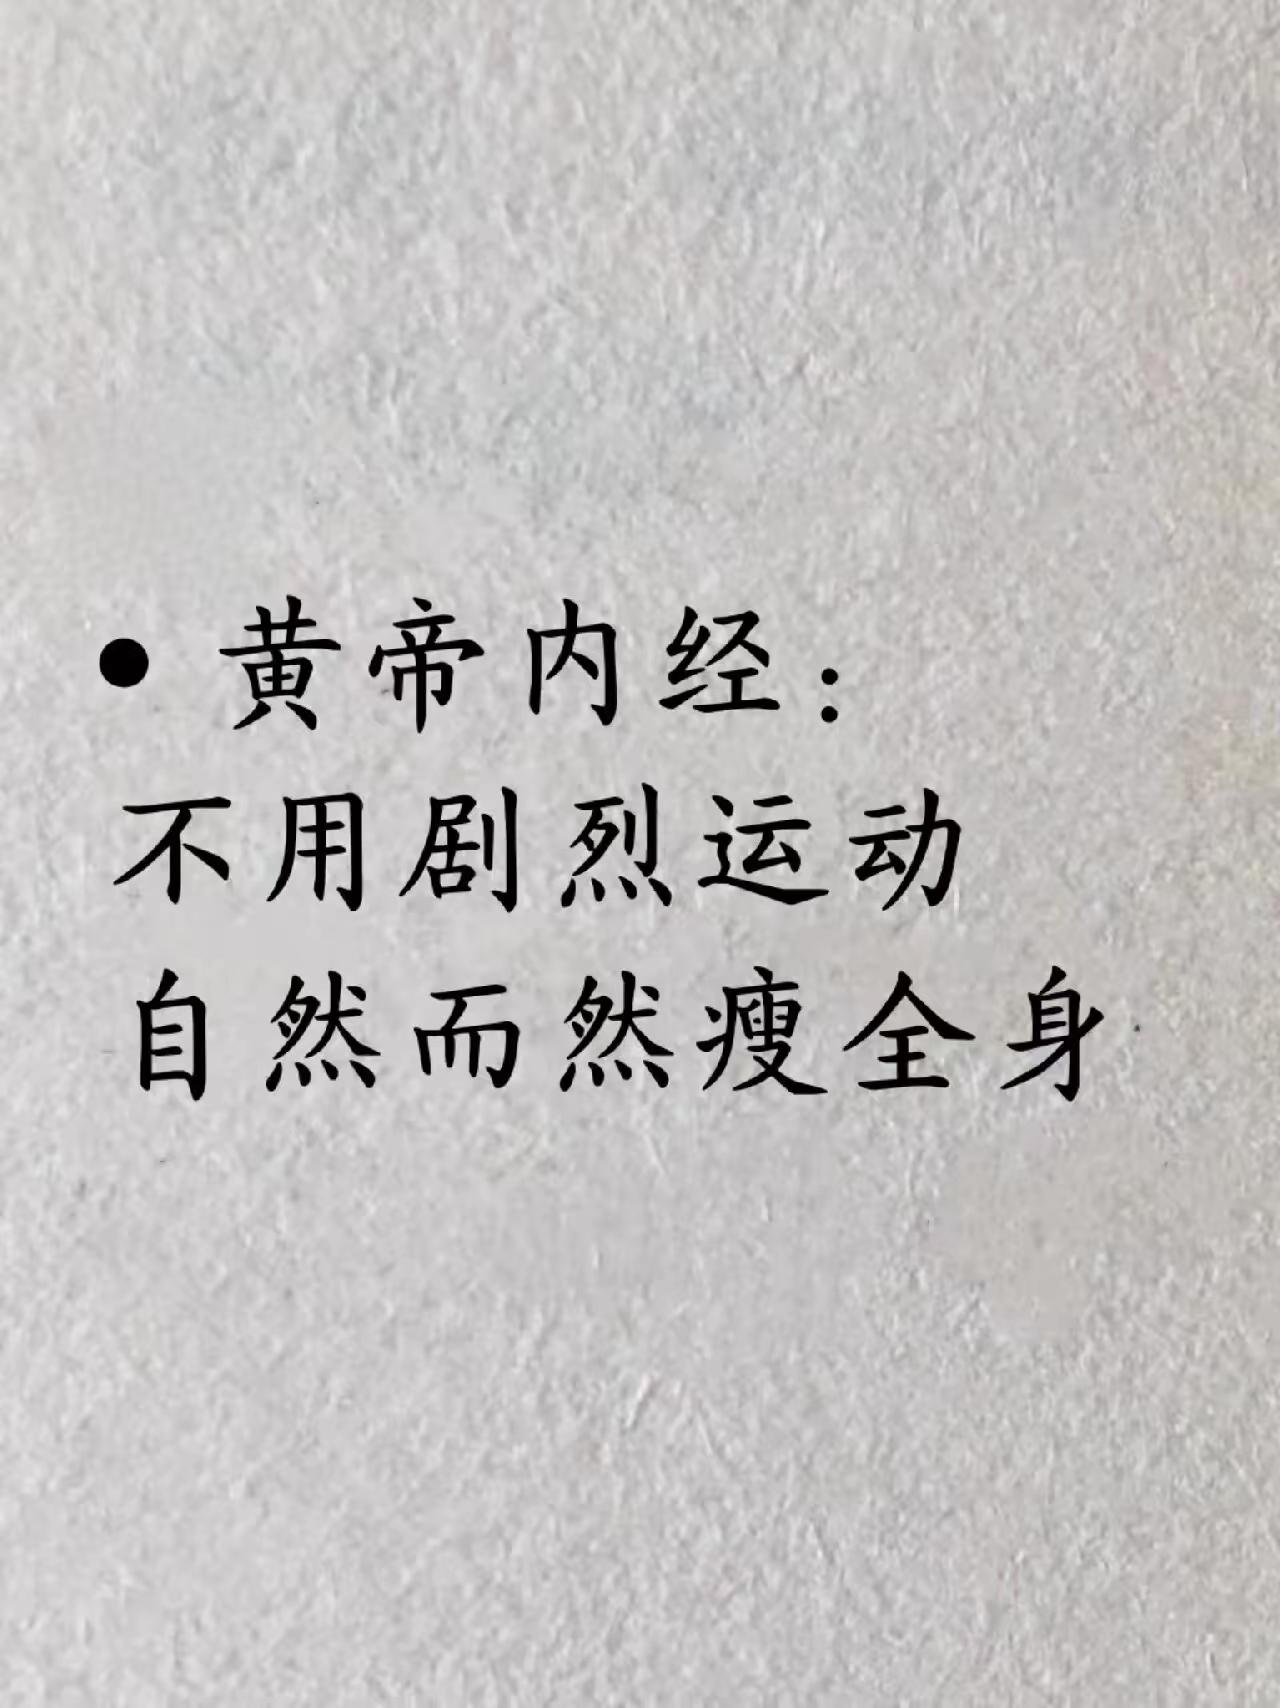 • 黄帝内经：
不用剧烈运动
自然而然瘦全身